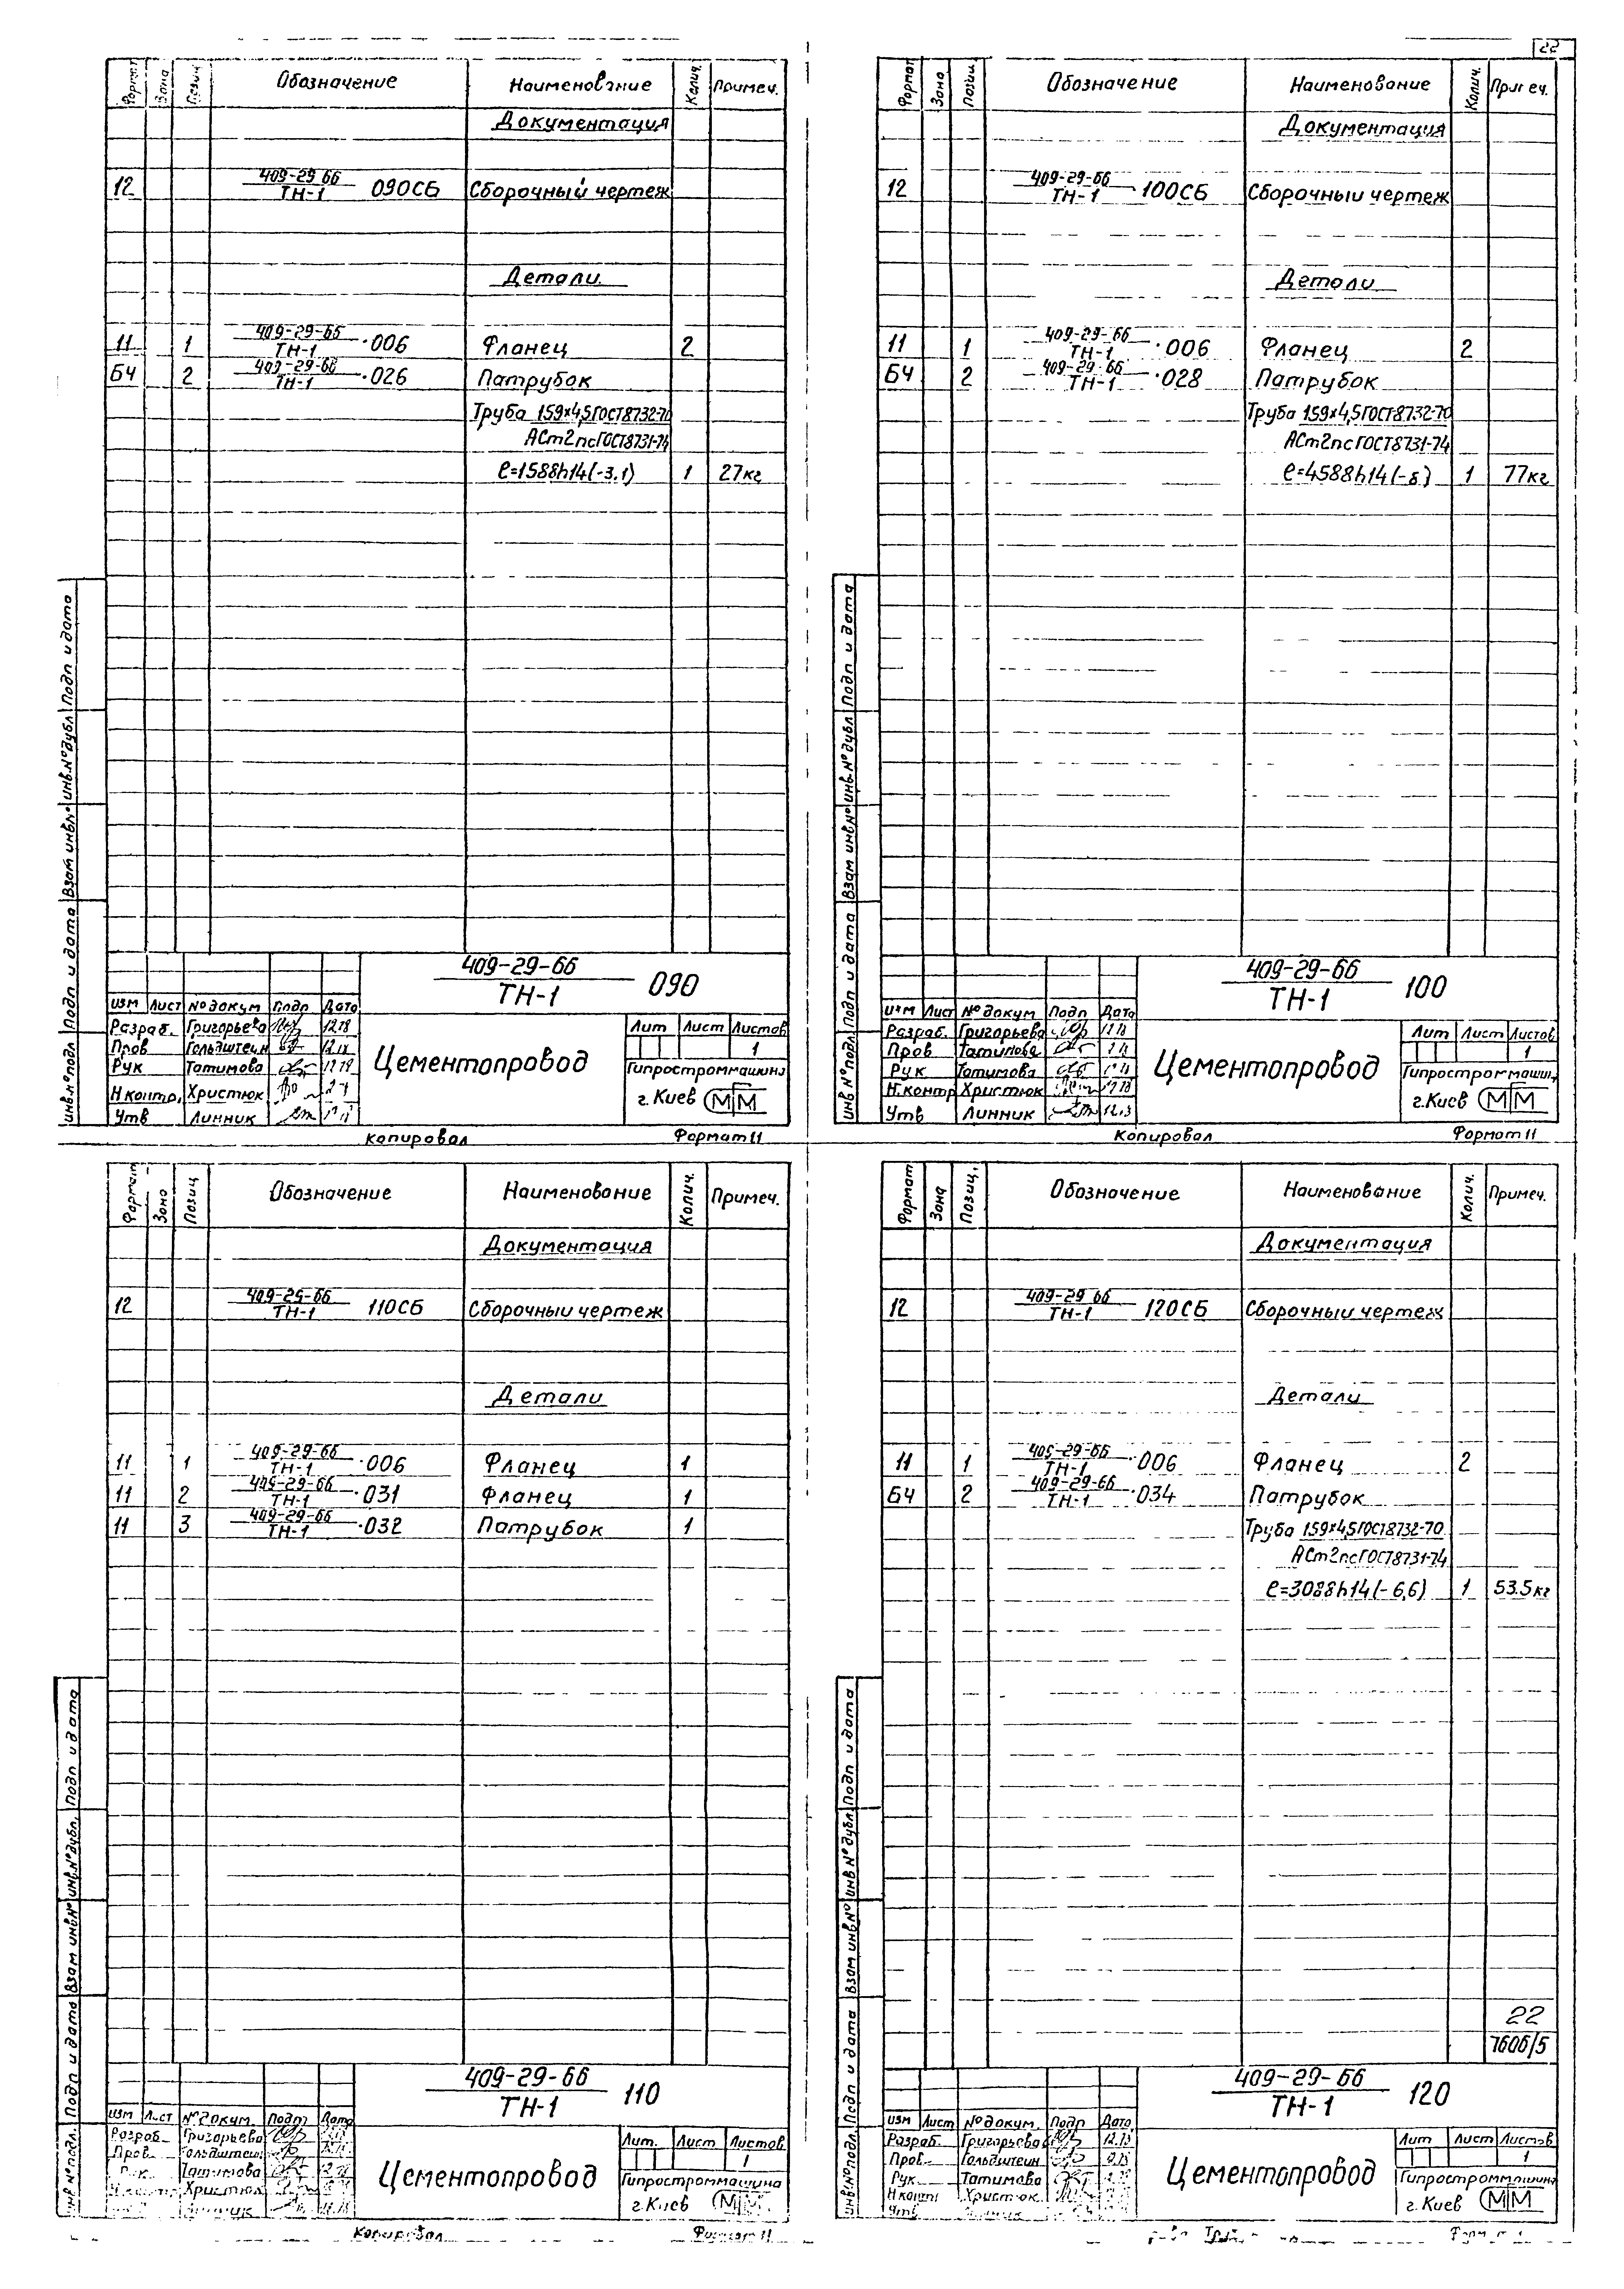 22
Формат Зона Позиц Обозначение Наименование Колич. Примеч.
Документация
12 409-29-66/ТН-1 090СБ Сборочный чертеж
Детали
11 1 409-29-66/ТН-1 ·006 Фланец 2
БЧ 2 409-29-66/ТН-1 ·026 Патрубок
Труба 159×4,5 ГОСТ 8732-70
АСт2пс ГОСТ 8731-74
ℓ=1588h14(-3.1) 1 27кг
Инв.№подл Подп и дата Взам инв№ Инв.№дубл Подп и дата
409-29-66/ТН-1 090
Изм Лист №докум Подп Дата
Разраб. Григорьева 12.78
Пров Гольдштейн
Рук Татимова
Н.контр. Христюк
Утв Линник
Цементопровод
Лит Лист Листов
1
Гипростроммашина
г.Киев
Копировал Формат 11
Формат Зона Позиц. Обозначение Наименование Колич. Примеч.
Документация
12 409-29-66/ТН-1 ·100СБ Сборочный чертеж
Детали
11 1 409-29-66/ТН-1 ·006 Фланец 2
БЧ 2 409-29-66/ТН-1 ·028 Патрубок
Труба 159×4,5 ГОСТ 8732-70
АСт2пс ГОСТ 8731-74
ℓ=4588h14(-8) 1 77кг
Инв№подл Подп и дата Взам инв№ Инв.№дубл Подп и дата
409-29-66/ТН-1 100
Изм Лист №докум Подп Дата
Разраб. Григорьева
Пров Татимова
Рук Татимова
Н.контр Христюк
Утв Линник
Цементопровод
Лит Лист Листов
1
Гипростроммашина
г.Киев
Копировал Формат 11
Формат Зона Позиц Обозначение Наименование Колич. Примеч.
Документация
12 409-29-66/ТН-1 110СБ Сборочный чертеж
Детали
11 1 409-29-66/ТН-1 ·006 Фланец 1
11 2 409-29-66/ТН-1 ·031 Фланец 1
11 3 409-29-66/ТН-1 ·032 Патрубок 1
Инв№подл. Подп и дата Взам инв№ Инв.№дубл. Подп и дата
409-29-66/ТН-1 110
Изм Лист №докум. Подп Дата
Разраб. Григорьева
Пров. Гольдштейн
Рук. Татимова
Н.контр Христюк
Цементопровод
Лит. Лист Листов
1
Гипростроммашина
г.Киев
Копировал Формат 11
Формат Зона Позиц. Обозначение Наименование Колич. Примеч.
Документация
12 409-29-66/ТН-1 120СБ Сборочный чертеж
Детали
11 1 409-29-66/ТН-1 ·006 Фланец 2
БЧ 2 409-29-66/ТН-1 ·034 Патрубок
Труба 159×4,5 ГОСТ 8732-70
АСт2пс ГОСТ 8731-74
ℓ=3088h14(-6,6) 1 53.5кг
22
7606/5
Инв№подл. Подп и дата Взам инв№ Инв№дубл Подп и дата
409-29-66/ТН-1 120
Изм Лист №докум. Подп Дата
Разраб. Григорьева
Пров. Гольдштейн
Рук. Татимова
Н контр Христюк
Утв
Цементопровод
Лит Лист Листов
1
Гипростроммашина
г.Киев